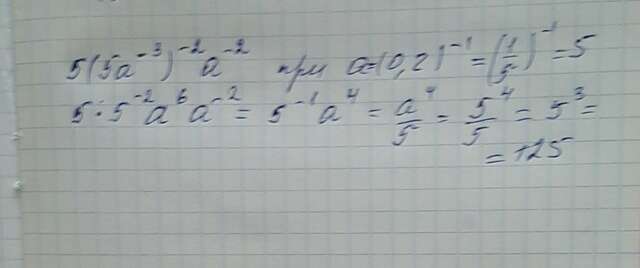 5(5a⁻³)⁻²a⁻² при a=(0,2)⁻¹=(1/5)⁻¹=5
5·5⁻²a⁶a⁻²=5⁻¹a⁴=a⁴/5=5⁴/5=5³=
=125